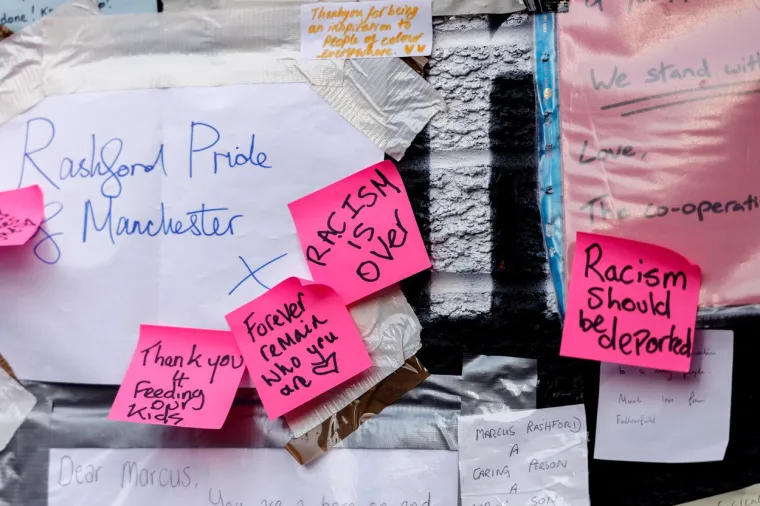 Thankyou for being
an inspiration to
People of colour
everywhere.
We stand with
Love,
The co-operati
Rashford Pride
of Manchester
X
RACISM
IS
OVER
Racism
should
be deported
Forever
remain
who you
are
Thank you
4
Feeding
our
Kids
Much love from
Dear Marcus,
You are a hero on and
MARCUS RASHFORD
A
CARING PERSON
A
SON